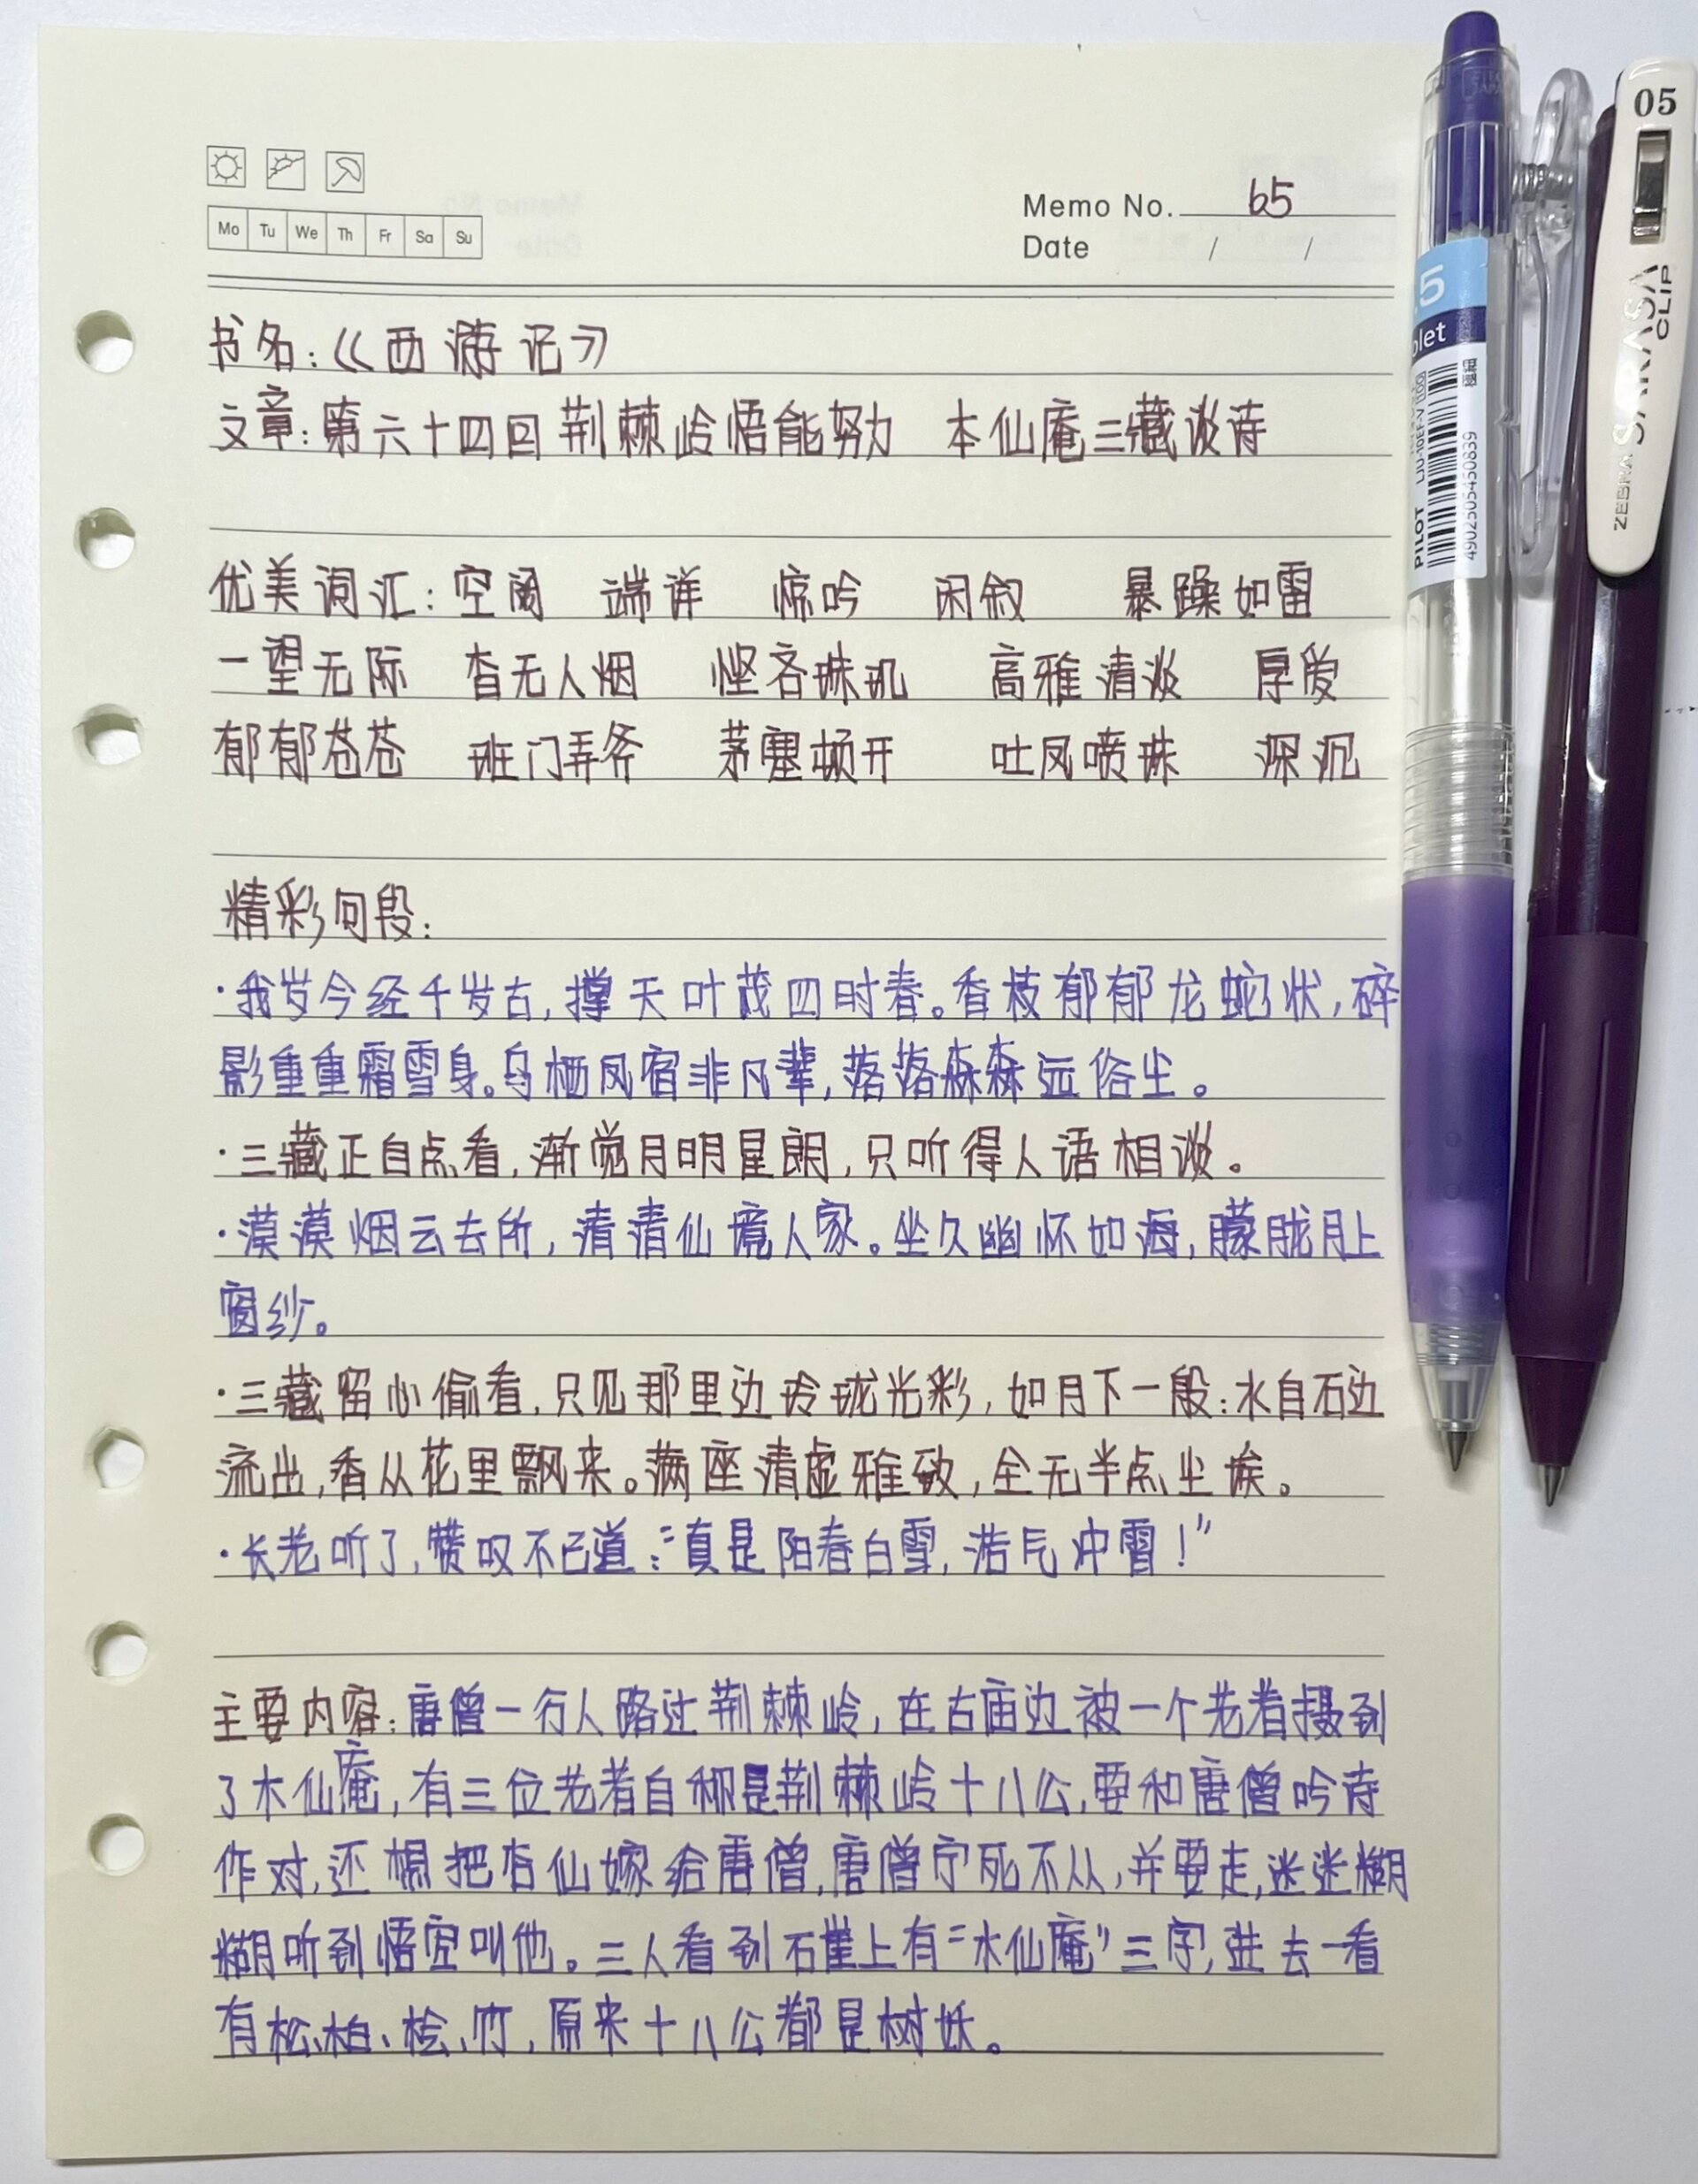 Mo Tu We Th Fr Sa Su
Memo No. 65
Date / /
书名:《西游记》
文章:第六十四回 荆棘岭悟能努力 本仙庵三藏谈诗
优美词汇:空阔 端详 惊吟 闲叙 暴躁如雷
一望无际 杳无人烟 悭吝珠玑 高雅清淡 厚爱
郁郁苍苍 班门弄斧 茅塞顿开 吐凤喷珠 深沉
精彩句段:
·我岁今经千岁古,撑天叶茂四时春。香枝郁郁龙蛇状,碎
影重重霜雪身。鸟栖凤宿非凡辈,落落森森远俗尘。
·三藏正自点看,渐觉月明星朗,只听得人语相谈。
·漠漠烟云去所,清清仙境人家。坐久幽怀如海,朦胧月上
窗纱。
·三藏留心偷看,只见那里边玲珑光彩,如月下一般:水自石边
流出,香从花里飘来。满座清虚雅致,全无半点尘埃。
·长老听了,赞叹不已道:“真是阳春白雪,浩气冲霄!”
主要内容:唐僧一行人路过荆棘岭,在古庙边被一个老者摄到
了木仙庵,有三位老者自称是荆棘岭十八公,要和唐僧吟诗
作对,还想把杏仙嫁给唐僧,唐僧宁死不从,并要走,迷迷糊
糊听到悟空叫他。三人看到石崖上有“木仙庵”三字,进去一看
有松、柏、桧、竹,原来十八公都是树妖。
05
SARASA
CLIP
ZEBRA
.5
olet
PILOT
LJU-10EF-V
4902505450839